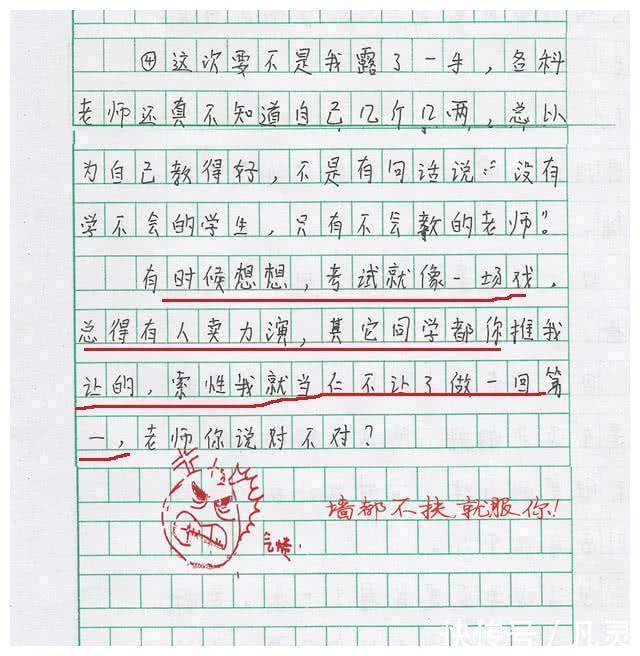 ④这次要不是我露了一手，各科
老师还真不知道自己几个几两，总以
为自己教得好，不是有句话说：“没有
学不会的学生，只有不会教的老师”。
有时候想想，考试就像一场戏，
总得有人卖力演，其它同学都你推我
让的，索性我就当仁不让了做一回第
一，老师你说对不对？
墙都不扶就服你！
气愤
快传号/凡灵